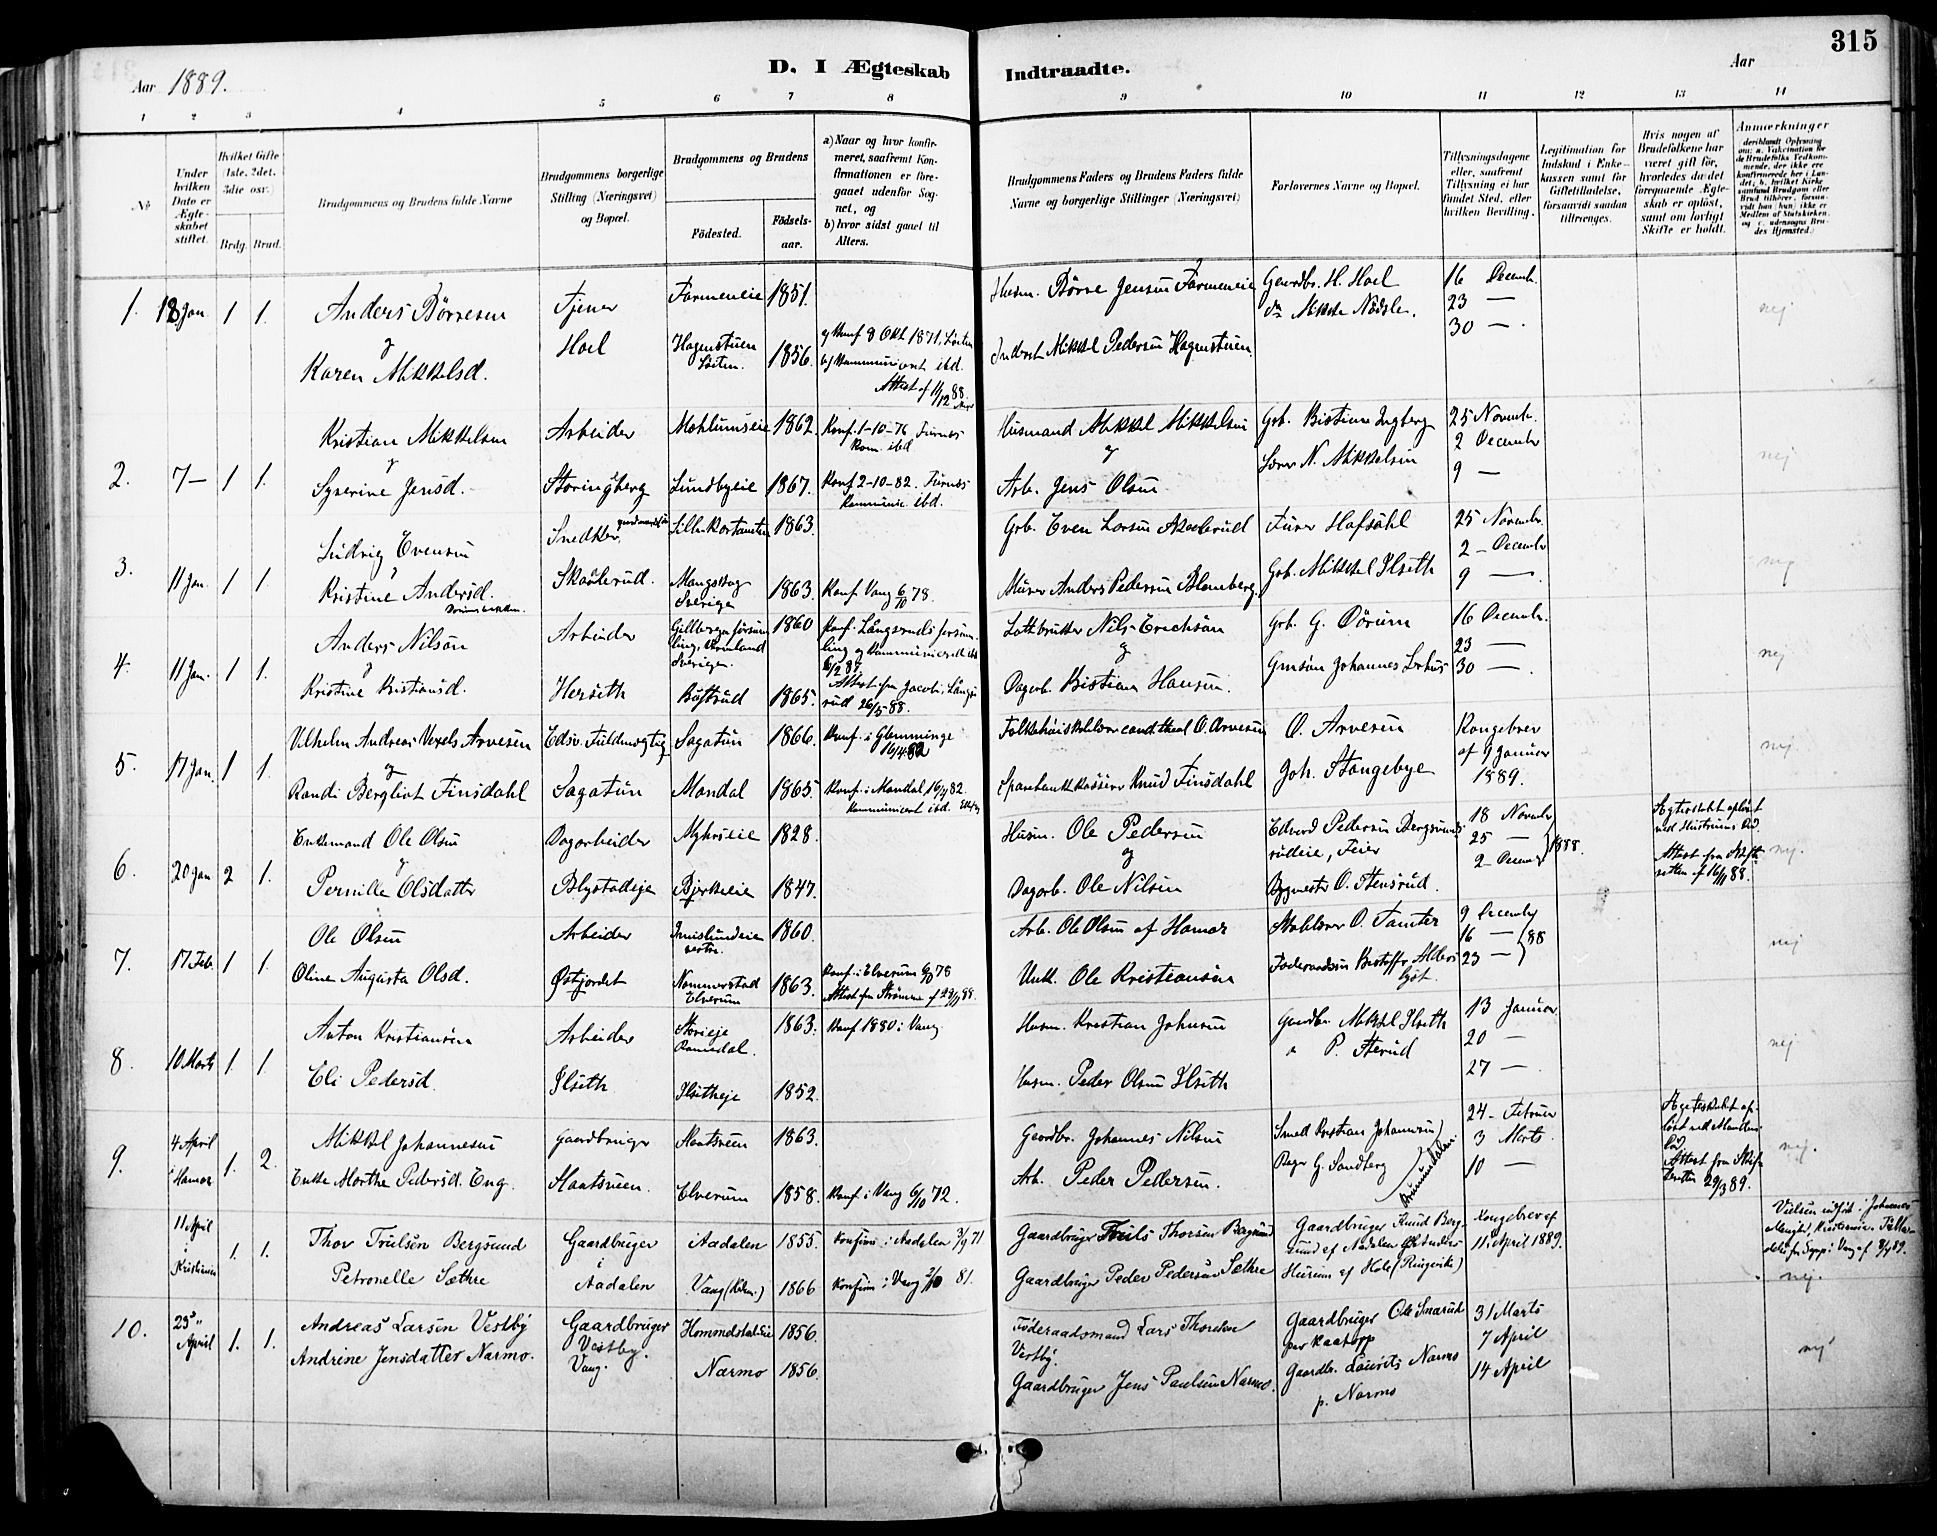 315
Aar 1889.
D. I Ægteskab Indtraadte.
Aar
1 2 3 4 5 6 7 8 9 10 11 12 13 14
No
Under hvilken Dato er Ægteskabet stiftet.
Hvilket Gifte (1ste, 2det, 3die osv.)
Brdg. Brud.
Brudgommens og Brudens fulde Navne
Brudgommens borgerlige Stilling (Næringsvei) og Bopæl.
Brudgommens og Brudens
Fødested. Fødselsaar.
a) Naar og hvor konfirmeret, saafremt Konfirmationen er foregaaet udenfor Sognet, og
b) hvor sidst gaaet til Alters.
Brudgommens Faders og Brudens Faders fulde Navne og borgerlige Stillinger (Næringsvei)
Forlovernes Navne og Bopæl.
Tillysningsdagene eller, saafremt Tillysning ei har fundet Sted, efter hvilken Bevilling.
Legitimation for Indskud i Enkekassen samt for Giftetilladelse, forsaavidt saadan tiltrænges.
Hvis nogen af Brudefolkene har været gift før, hvorledes da det foregaaende Ægteskab er opløst, samt om lovligt Skifte er holdt.
Anmærkninger
1. 18 Jan 1 1. Anders Børresen Tjener Farmeneie 1851. Husm. Børre Jensen Farmeneie Gaardbr. H. Hoel 16 Decembr. nej
og Hoel do Mikkel Nødsle. 23 —
Karen Mikkelsd. Hagenstuen Løiten. 1856. Konf 8 Okt 1871, Løiten Inderst Mikkel Pedersen Hagenstuen. 30 —
Kommunicent ibd.
Attest af 11/12 88
Kristian Mikkelsen Arbeider Mohlumseie 1862. Konf. 1-10-76 Furnes Husmand Mikkel Mikkelsen Grb. Kristian Ingberg 25 Novembr.
Kom. ibd
2. 7 — 1 1. og og Lærer N. Mikkelsen 2 December nej
Syverine Jensd. Storingberg Lundbyeie 1867. Konf 2-10-82. Furnes Arb. Jens Olsen 9 —
Kommunic. ibd.
Ludvig Evensen Snedker Lillekostamoen 1863. Grb. Even Larsen Skaaterud Furer Hafsähl 25 Novembr.
3. 11 Jan. 1 1. og 2 — Decembr nej
Kristine Andersd. Skaaterud. Mangskog Sverige 1863. Konf Vang 6/10 78. Murer Anders Pedersen Blomberg. Grb. Mikkel Ilseth 9 —
Anders Nilsön Arbeider Gillberga församling, Vermland Sverige. 1860 Konf. i Långseruds forsamling og kommuniceret ibd Lottbrukter Nils Erichsön Grb. G. Dørum 16 Decembr.
6/2 87.
4. 11 Jan. 1 1. og og 23 — nej
Attest fra Jacobi, Långs
Kristine Kristiansd. Herseth Böfsrud 1865. rud 26/5 88. Dagarb. Kristian Hansen. Gmsön Johannes Lohus 30 —
Vilhelm Andreas Wexels Arvesen Edsv. Fuldmægtig Sagatun 1866. Konf. i Glemminge 16/4 82 Folkehøiskolebst. cand. theol O. Arvesen O. Arvesen Kongebrev
5. 17 Jan. 1 1. og af 9 Januar nej
Randi Bergliot Finsdahl Sagatun Mandal 1865. Konf. i Mandal 16/4 82. Sparebankkasserer Knud Finsdahl Joh. Stangebye 1889.
Kommunicert ibd.
Enkemand Ole Olsen Dagarbeider Myhrseie 1828. Husm. Ole Pedersen Edvard Pedersen Bergsunds 18 Novembr Ægteskabet opløst ved Hustruens Død.
6. 20 Jan 2 1. og og rudleie, Feier 25 — 1888. Attest fra Skifte nej.
Pernille Olsdatter Blystadeje Bjerkeeie 1847. Dagarb. Ole Nilsen Bygmester O. Stensrud. 2 — Decembr retten af 16/11 88.
Ole Olsen Arbeider Imislundeie vestre. 1860. Arb. Ole Olsen af Hamar Skolelærer O. Tomter 9 December
7. 17 Feb. 1 1. 16 — 88 nej
Oline Augusta Olsd. Østjordet Nommerstad Elverum 1863. Konf. i Elverum 78 Unkl. Ole Kristiansen Foderaadsm Kristoffr. Alders lyst. 23 —
Attest fra Strømme af 88.
Anton Kristiansen Arbeider Storieje Romedal. 1863. Konf 1880 i Vang Husm. Kristian Johnsen Gaardbr. Mikkel Ilseth 13 Januar
8. 10 Marts 1. 1. " P. Sterud 20 — nej
Eli Pedersd. Ilseth Ilsetheje 1852. Husm. Peder Olsen Ilseth 27 —
4 April Mikkel Johannesen Gaardbruger Stantsveen 1863. Gaardbr. Johannes Nilsen Smed Kristian Johannesen 24 — Februar Ægteskabet opløst ved Mandens Død
9. i Hamar 1. 2. Bager G. Sandberg Brumundalen. 3 Marts nej.
Enke Marthe Pedersd. Eng. Stantsveen. Elverum 1858. Konf i Vang 6/10 72. Arb. Peder Pedersen. 10 — Attest fra Skifteretten 29/3 89.
11 April Thor Trulsen Bergsund Gaardbruger Aadalen 1855. Konfirm. i Aadalen 3/9 71 Gaardbruger Truls Thorsen Bergsund Gaardbruger Knud Bergsund af Aadalen Kongebrev af Vielsen udført i Johannes Menighd. Kristiania
i Kristiania 1. 1. i 11 April 1889.
Petronelle Sæthre Aadalen Vang (Hdm.) 1866 Konfirm. i Vang 2/10 81. Gaardbruger Peder Pedersen Sæthre Husum af Hole (Ringerike) nej.
10. 25 April 1. 1. Andreas Larsen Vestby Gaardbruger Hommelstadeie 1856. Føderaadsmand Lars Thorsen Vestby. Gaardbruger Ole Snarud 31 Marts
Vestby. per Kaatopp 7 April nej
Andrine Jensdatter Narmo. Vang. Narmo 1856. Gaardbruger Jens Paulsen Narmo. Gaardbr. Laurits Narmo 14 April
p. Narmo